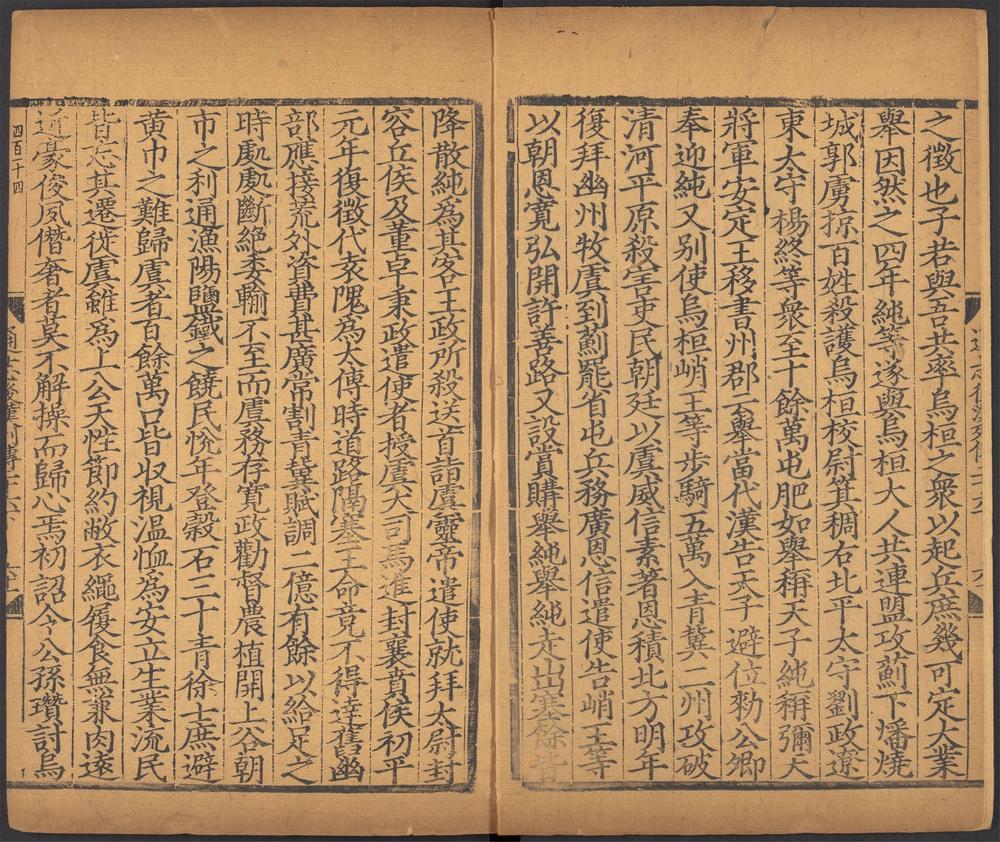 之徵也子若與吾共率烏桓之衆以起兵庶幾可定大業
舉因然之四年純等遂與烏桓大人共連盟攻薊下燔燒
城郭虜掠百姓殺護烏桓校尉箕稠右北平太守劉政遼
東太守楊終等衆至十餘萬屯肥如舉稱天子純稱彌天
將軍安定王移書州郡云舉當代漢告天子避位勑公卿
奉迎純又別使烏桓峭王等步騎五萬入青冀二州攻破
清河平原殺害吏民朝廷以虞威信素著恩積北方明年
復拜幽州牧虞到薊罷省屯兵務廣恩信遣使告峭王等
以朝恩寬弘開許善路又設賞購舉純舉純走出塞餘皆
降散純爲其客王政所殺送首詣虞靈帝遣使就拜太尉封
容丘侯及董卓秉政遣使者授虞大司馬進封襄賁侯初平
元年復徵代袁隗爲太傅時道路隔塞王命竟不得達舊幽
部應接荒外資費甚廣常割青冀賦調二億有餘以給足之
時處處斷絶委輸不至而虞務存寛政勸督農植開上谷胡
市之利通漁陽鹽鐵之饒民悅年登穀石三十青徐士庶避
黃巾之難歸虞者百餘萬口皆収視溫恤爲安立生業流民
皆忘其遷徙虞雖爲上公天性節約敝衣繩履食無兼肉遠
近豪俊夙僭奢者莫不解操而歸心焉初詔令公孫瓚討烏
四百二十四